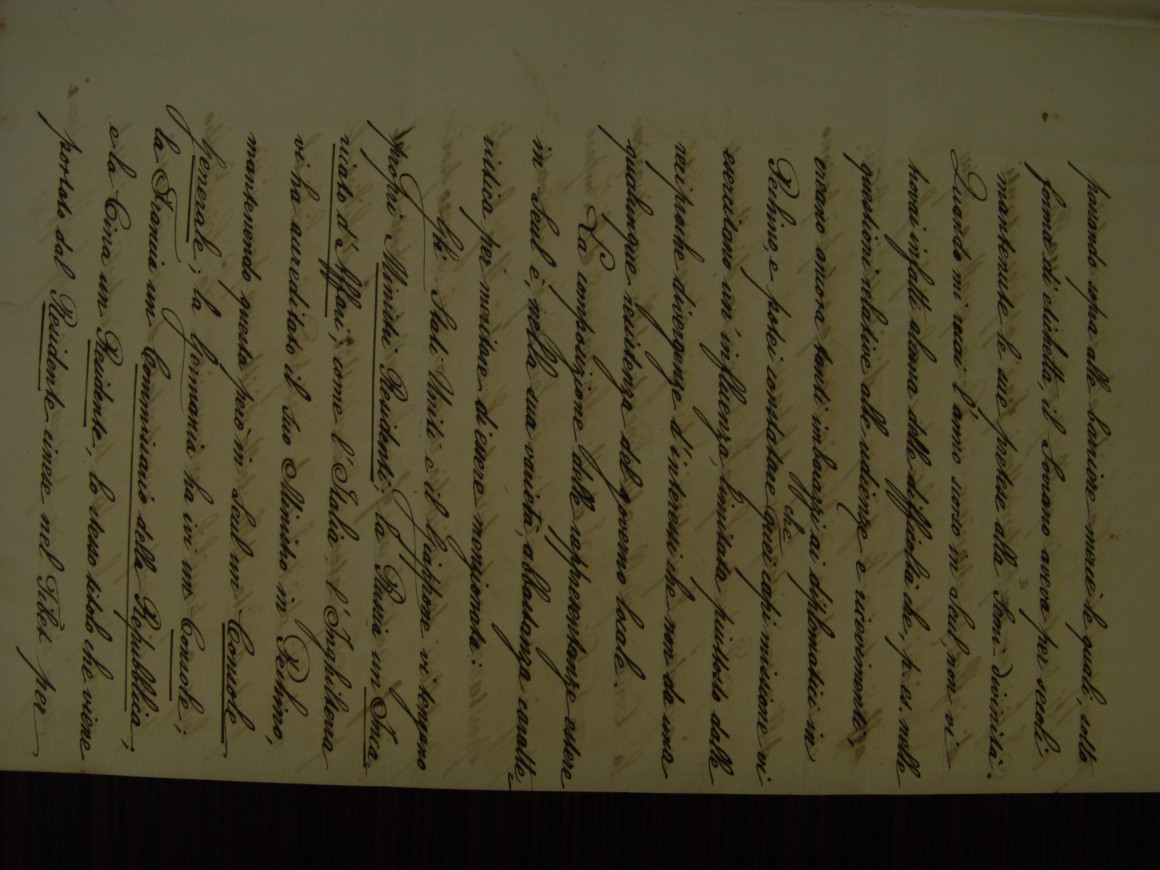 ponendo sopra alle barriere murarie le quali, sotto
forma di etichetta, il Sovrano aveva per secoli
mantenute le sue pretese alla Semi-Divinità.
Quando mi recai l'anno scorso in Seul, non vi
trovai infatti alcuna delle difficoltà che, p. es. nelle
questioni relative alle udienze e ricevimenti,
creano ancora tanti imbarazzi ai diplomatici in
Pekino, e potei constatare che quei capi missione vi
esercitano un'influenza, limitata piuttosto dalle
reciproche divergenze d'interessi che non da una
qualunque resistenza del governo locale.
La composizione delle rappresentanze estere
in Seul è, nella sua varietà, abbastanza caratte
ristica per meritare di essere menzionata:
Gli Stati Uniti e il Giappone vi tengono
propri Ministri Residenti; la Russia un Inca,
ricato d'Affari; come l'Italia l'Inghilterra
vi ha accreditato il suo Ministro in Pekino,
mantenendo questa però in Seul un Console
Generale; la Germania ha ivi un Console;
la Francia un Commissario della Repubblica;
e la Cina un Residente, lo stesso titolo che viene
portato dal Residente cinese nel Tibet per